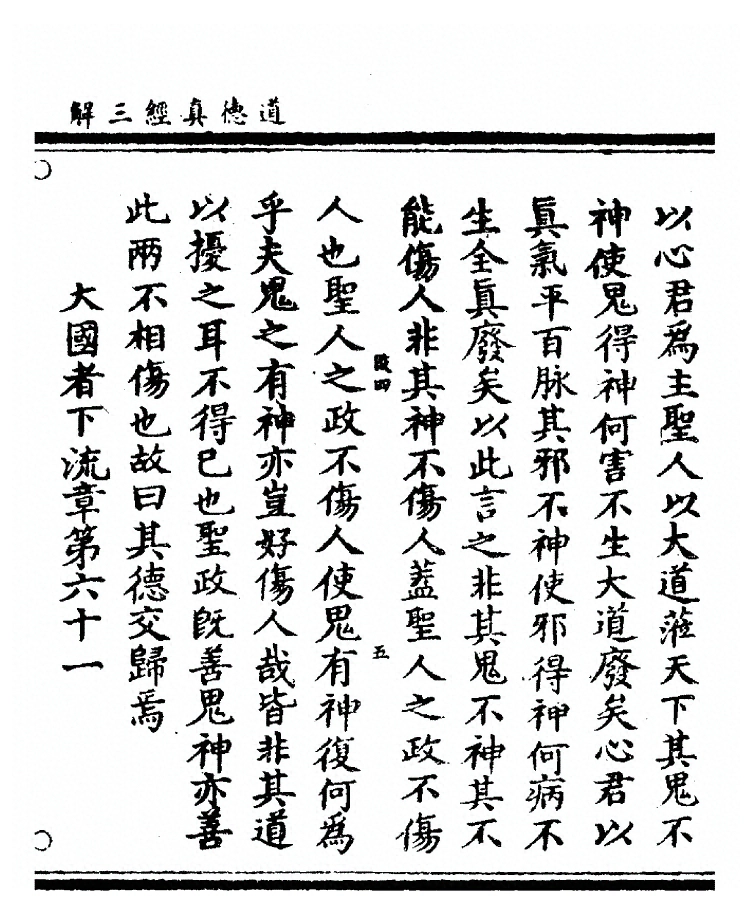 道德真經三解
以心君爲主聖人以大道蒞天下其鬼不
神使鬼得神何害不生大道廢矣心君以
眞氣平百脉其邪不神使邪得神何病不
生全眞廢矣以此言之非其鬼不神其不
能傷人非其神不傷人蓋聖人之政不傷
改四 五
人也聖人之政不傷人使鬼有神復何爲
乎夫鬼之有神亦豈好傷人哉皆非其道
以擾之耳不得已也聖政旣善鬼神亦善
此兩不相傷也故曰其德交歸焉
大國者下流章第六十一